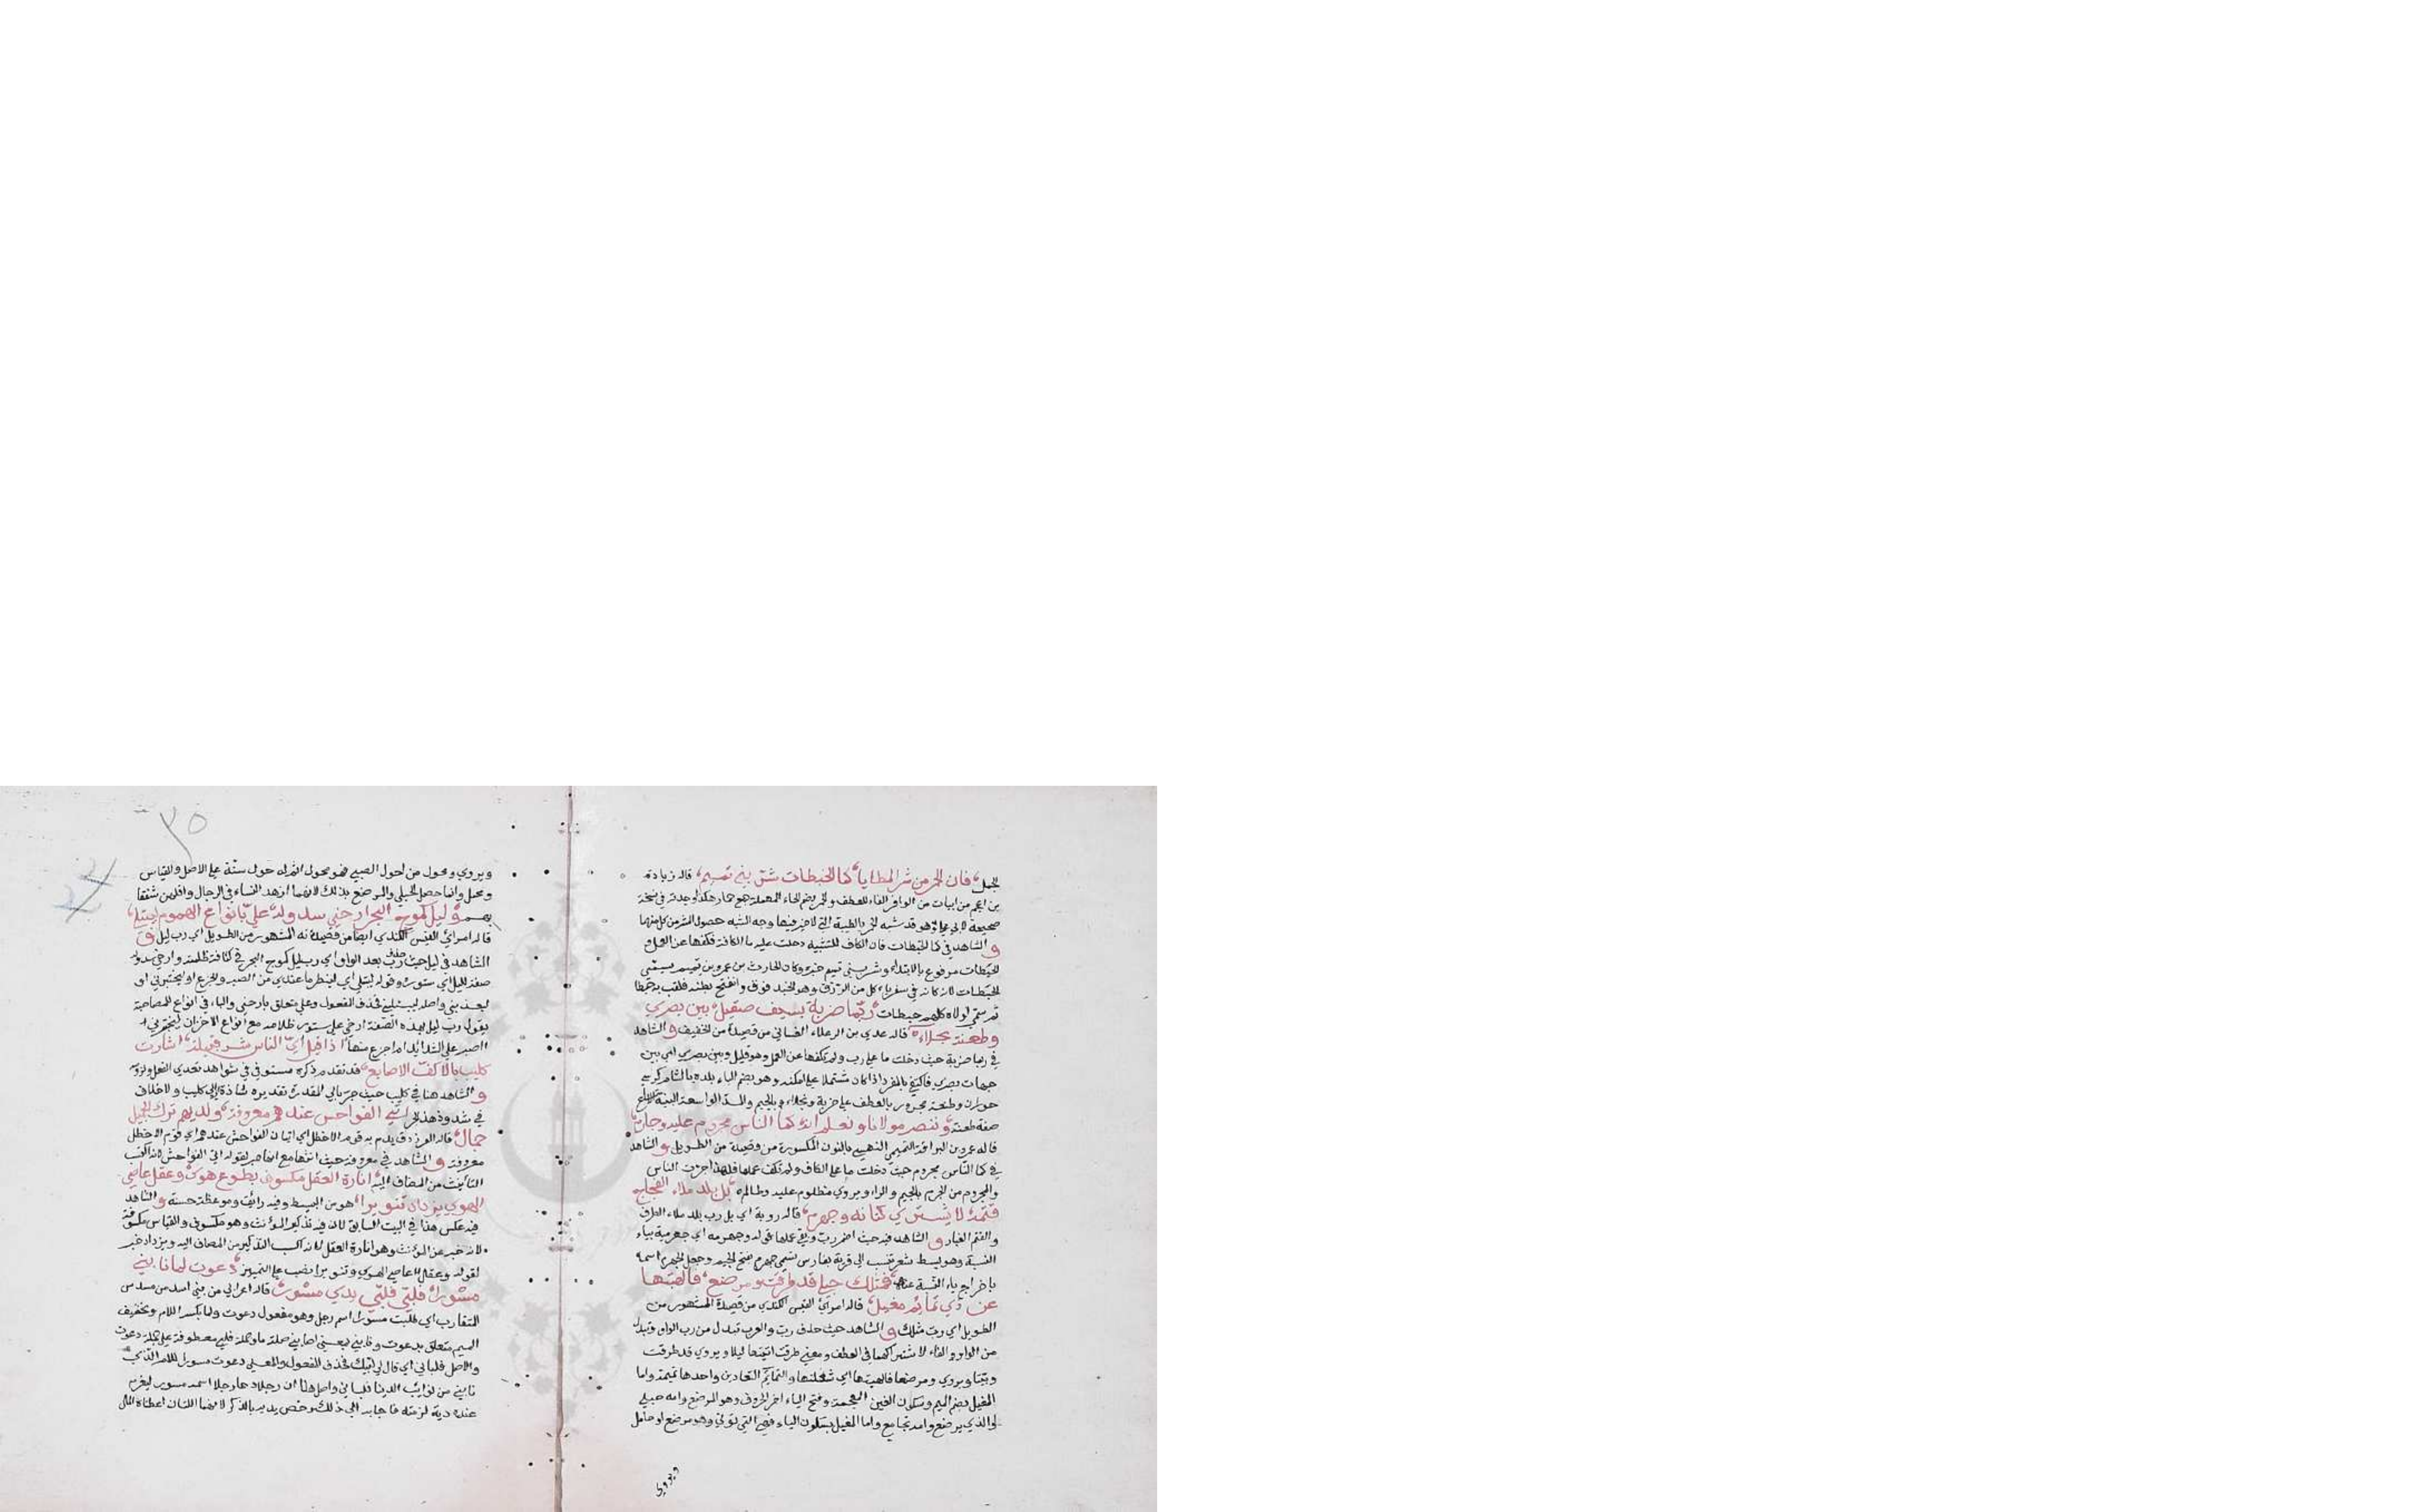 الجمل فان الحمر من شر المطايا كما الحبطات شر بني تميم قاله زيادة
بن اعجم من ابيات من الوافر الفاء للعطف والحمر بضم الحاء المهملة جمع حمار هكذا وجدته في نسخة
صحيحة لابي علي وهو قد شبه الحمر بالطيبة التي لا خير فيها وجه الشبه حصول الشر من كل منهما
و الشاهد في كما الحبطات فان الكاف للتشبيه دخلت عليه ما الكافة فكفها عن العمل و
الحبطات مرفوع بالابتداء وشر بني تميم خبره وكان الحارث بن عمرو بن تميم يسمى
الحبطات لانه كان في سفر اكل من الرزق وهو الجند قوق وانفتح بطنه فلقب به حبطا
ثم سمي اولاده كلهم حبطات ربما ضربة بسيف صقيل بين بصرى
وطعنة نجلاء قاله عدي بن الرعلاء الغساني من قصيدة من الخفيف و الشاهد
في ربما ضربة حيث دخلت ما على رب ولم تكفها عن العمل وهو قليل وبين بصرى اي بين
جهات بصرى فاكتفي بالمفرد اذا كان مشتملا على امكنة وهو بضم الباء بلدة بالشام كرسي
حوران وطعنة مجرور بالعطف على ضربة ونجلاء بالجيم والمد الواسعة البينة الاتساع
صفة طعنة وننصر مولانا ونعلم انه كما الناس مجروم عليه وجارم
قاله عمرو بن البراقة التميمي النهمي بالنون المكسورة من قصيدة من الطويل و الشاهد
في كما الناس مجروم حيث دخلت ما على الكاف ولم تكف عملها فلهذا جرت الناس
والمجروم من الجرم بالجيم والراء ويروي مظلوم عليه وظالم بل بلد ملء الفجاج
قتمه لا يشترى كتانه وجهرمه قاله روبة اي بل رب بلد ملاء الطرق
والقتم الغبار و الشاهد فيه حيث اضمر رب وبقي عملها قوله وجهرمه اي جهرمية بياء
النسبة وهو بسط شعر تنسب الى قرية بفارس تسمى جهرم بفتح الجيم وجعل الجهرم اسما
باخراج ياء النسبة عنه فمثلك حبلى قد طرقت ومرضع فالهيتها
عن ذي تمائم مغيل قاله امرائ القيس الكندي من قصيدته المشهورة من
الطويل اي رب مثلك و الشاهد حيث حذف رب والعرب تبدل من رب الواو وتبدل
من الواو الفاء لاشتراكهما في العطف ومعنى طرقت اتيتها ليلا ويروي قد طرقت
وثيبا ويروي ومرضعا فالهيتها اي شغلتها والتمائم التعاويذ واحدها تميمة واما
المغيل بضم الميم وسكون الغين المعجمة وفتح الياء اخر الحروف وهو المرضع وامه حبلى
او الذي يرضع وامه تجامع واما المغيل بسكون الياء فهي التي توتى وهو مرضع او حامل
ويروي
٣٥
ويروي ومحول من احول الصبي فهو محول اذا تم له حول سنة على الاصل والقياس
ومحيل وانما خص الحبلى والمرضع بذلك لانهما ازهد النساء في الرجال واقلهن شغفا
بهم وليل كموج البحر ارخى سدوله علي بانواع الهموم ليبتلي
قاله امرائ القيس الكندي ايضا من قصيدته المشهورة من الطويل اي رب ليل و
الشاهد في ليل حيث حذف رب بعد الواو اي رب ليل كموج البحر في كثافة ظلمته وارخى سدوله
صفة لليل اي ستوره وقوله ليبتلي اي لينظر ما عندي من الصبر والجزع او ليختبرني او
ليعذبني واصله ليبتليني فحذف المفعول وعلي متعلق بارخى والباء في انواع للمصاحبة
يقول رب ليل بهذه الصفة ارخى علي ستور ظلامه مع انواع الاحزان ليختبرني ا
ااصبر على الشدائد ام اجزع منها اذا قيل اي الناس شر قبيلة اشارت
كليب بالاكف الاصابع قد تقدم ذكره مستوفى في شواهد تعدي الفعل ولزومه
و الشاهد هنا في كليب حيث جر بالى المقدرة تقديره اشارة الى كليب ولا خلاف
في شدوذ هذا الجر اتي الفواحش عندهم معروفة ولديهم ترك الجميل
جمال قاله الفرزدق يذم به قوم الاخطل اي اتيان الفواحش عندهم اي قوم الاخطل
معروفة و الشاهد في معروفة حيث انثها مع انها خبر لقوله اتي الفواحش لانه اكتسب
التانيث من المضاف اليه انارة العقل مكسوف بطوع هوى وعقل عاصي
الهوى يزداد تنويرا هو من البسيط وفيه رائق وموعظة حسنة و الشاهد
فيه عكس هذا في البيت السابق لان فيه تذكير المؤنث وهو مكسوف والقياس مكسوفة
لانه خبر عن المؤنث وهو انارة العقل لانه اكتسب التذكير من المضاف اليه ويزداد خبر
لقوله وعقل عاصي الهوى وتنويرا نصب على التمييز دعوت لما نابني
مسورا فلبى فلبي يدي مسور قاله اعرابي من بني اسد من مسدس
المتقارب اي طلبت مسورا اسم رجل وهو مفعول دعوت ولما بكسر اللام وتخفيف
الميم متعلق بدعوت ونابني يعني اصابني صلة ما وجملة فلبى معطوفة على جملة دعوت
والاصل فلباني اي قال لي لبيك فحذف المفعول والمعنى دعوت مسورا للامر الذي
نابني من نوائب الدنيا فلباني واصل هذا ان رجلا دعا رجلا اسمه مسور ليغرم
عنه دية لزمته فاجابه الى ذلك وخص يديه بالذكر لانهما اللتان اعطتاه المال